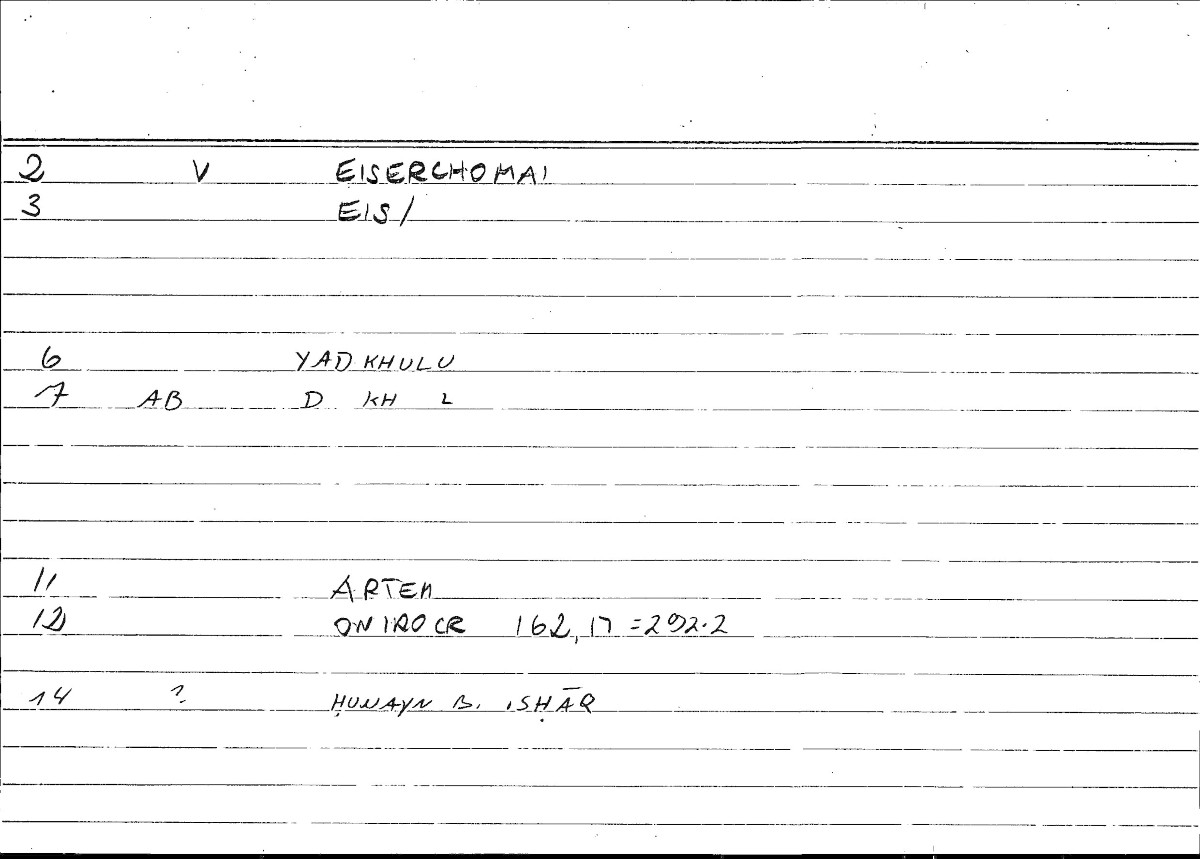 2 V EISERCHOMAI
3 EIS/
6 YADKHULU
7 AB D KH L
11 ARTEM
12 ONIROCR 162,17=292.2
14 ? ḤUNAYN B. ISḤĀQ